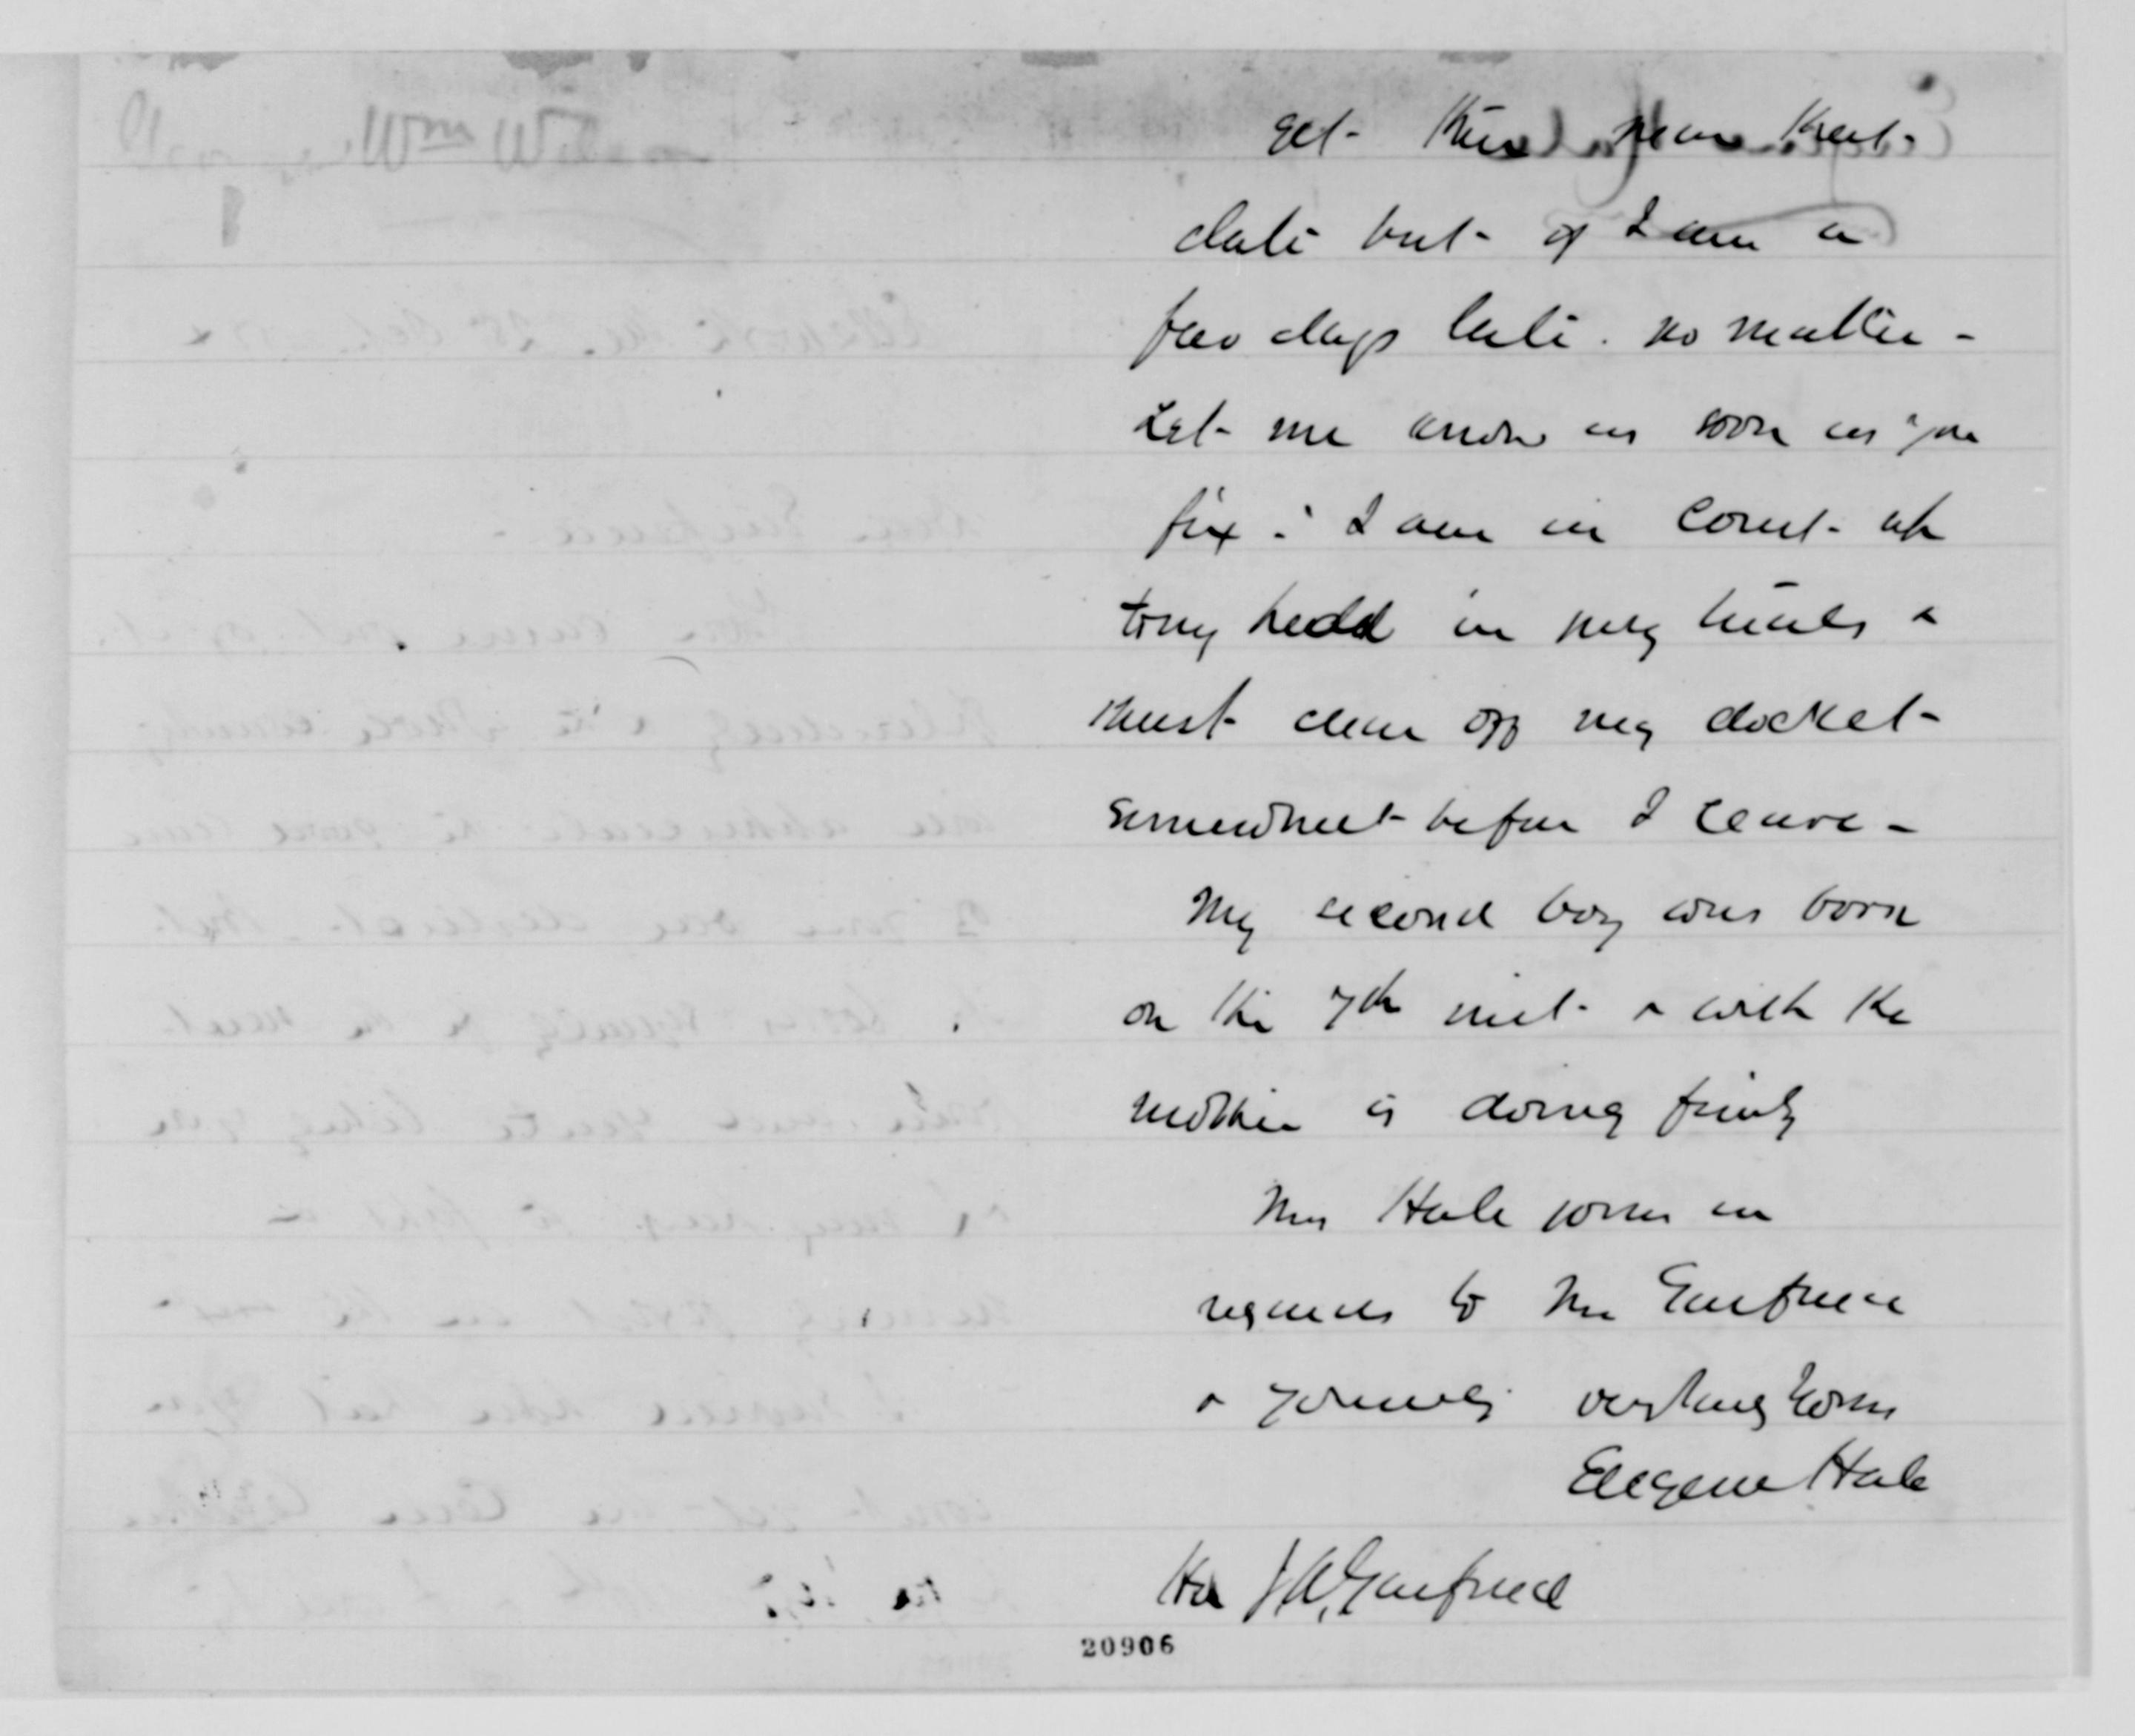 get there near that
date but if I am a
few days late. no matter -
Let me know as soon as you
fix: I am in Court up
to my head in jury trials &
must clear off my docket
somewhat before I leave -
My second boy was born
on the 7th inst. & with the
mother is doing finely
Mrs Hale joins in
regards to Mrs Garfield
& yourself very truly yours
Eugene Hale
Hon J.A. Garfield
20906